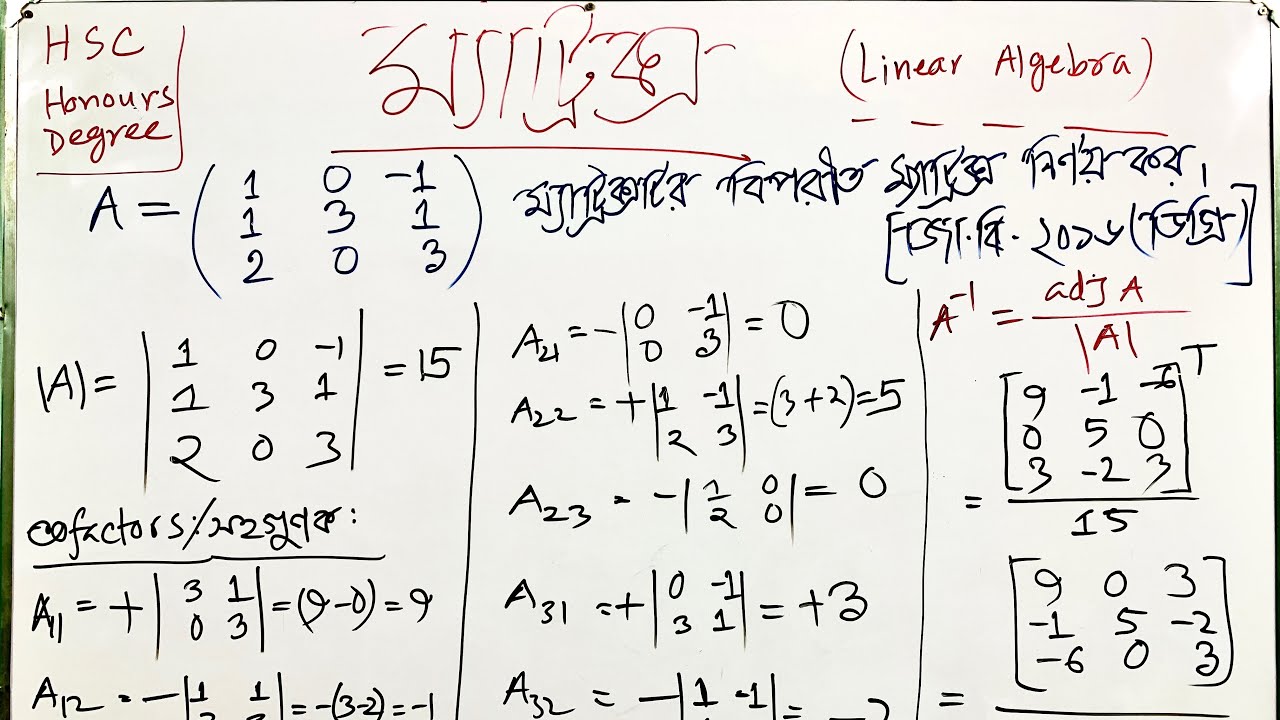 HSC
Honours
Degree
ম্যাট্রিক্স
(Linear Algebra)
A = ( 1 0 -1
1 3 1
2 0 3 ) ম্যাট্রিক্সটির বিপরীত ম্যাট্রিক্স নির্ণয় কর।
[জা.বি. ২০১৬ (ডিগ্রি)]
|A| = | 1 0 -1
1 3 1
2 0 3 | = 15
cofactors/সহগুণক:
A11 = + | 3 1
0 3 | = (9-0) = 9
A12 = - | 1 1
| = -(3-2) = -1
A21 = - | 0 -1
0 3 | = 0
A22 = + | 1 -1
2 3 | = (3+2) = 5
A23 = - | 1 0
2 0 | = 0
A31 = + | 0 -1
3 1 | = +3
A32 = - | 1 -1 | =
A⁻¹ = adj A
|A|
[ 9 -1 -6
0 5 0
3 -2 3 ]ᵀ
=
15
[ 9 0 3
-1 5 -2
-6 0 3 ]
=